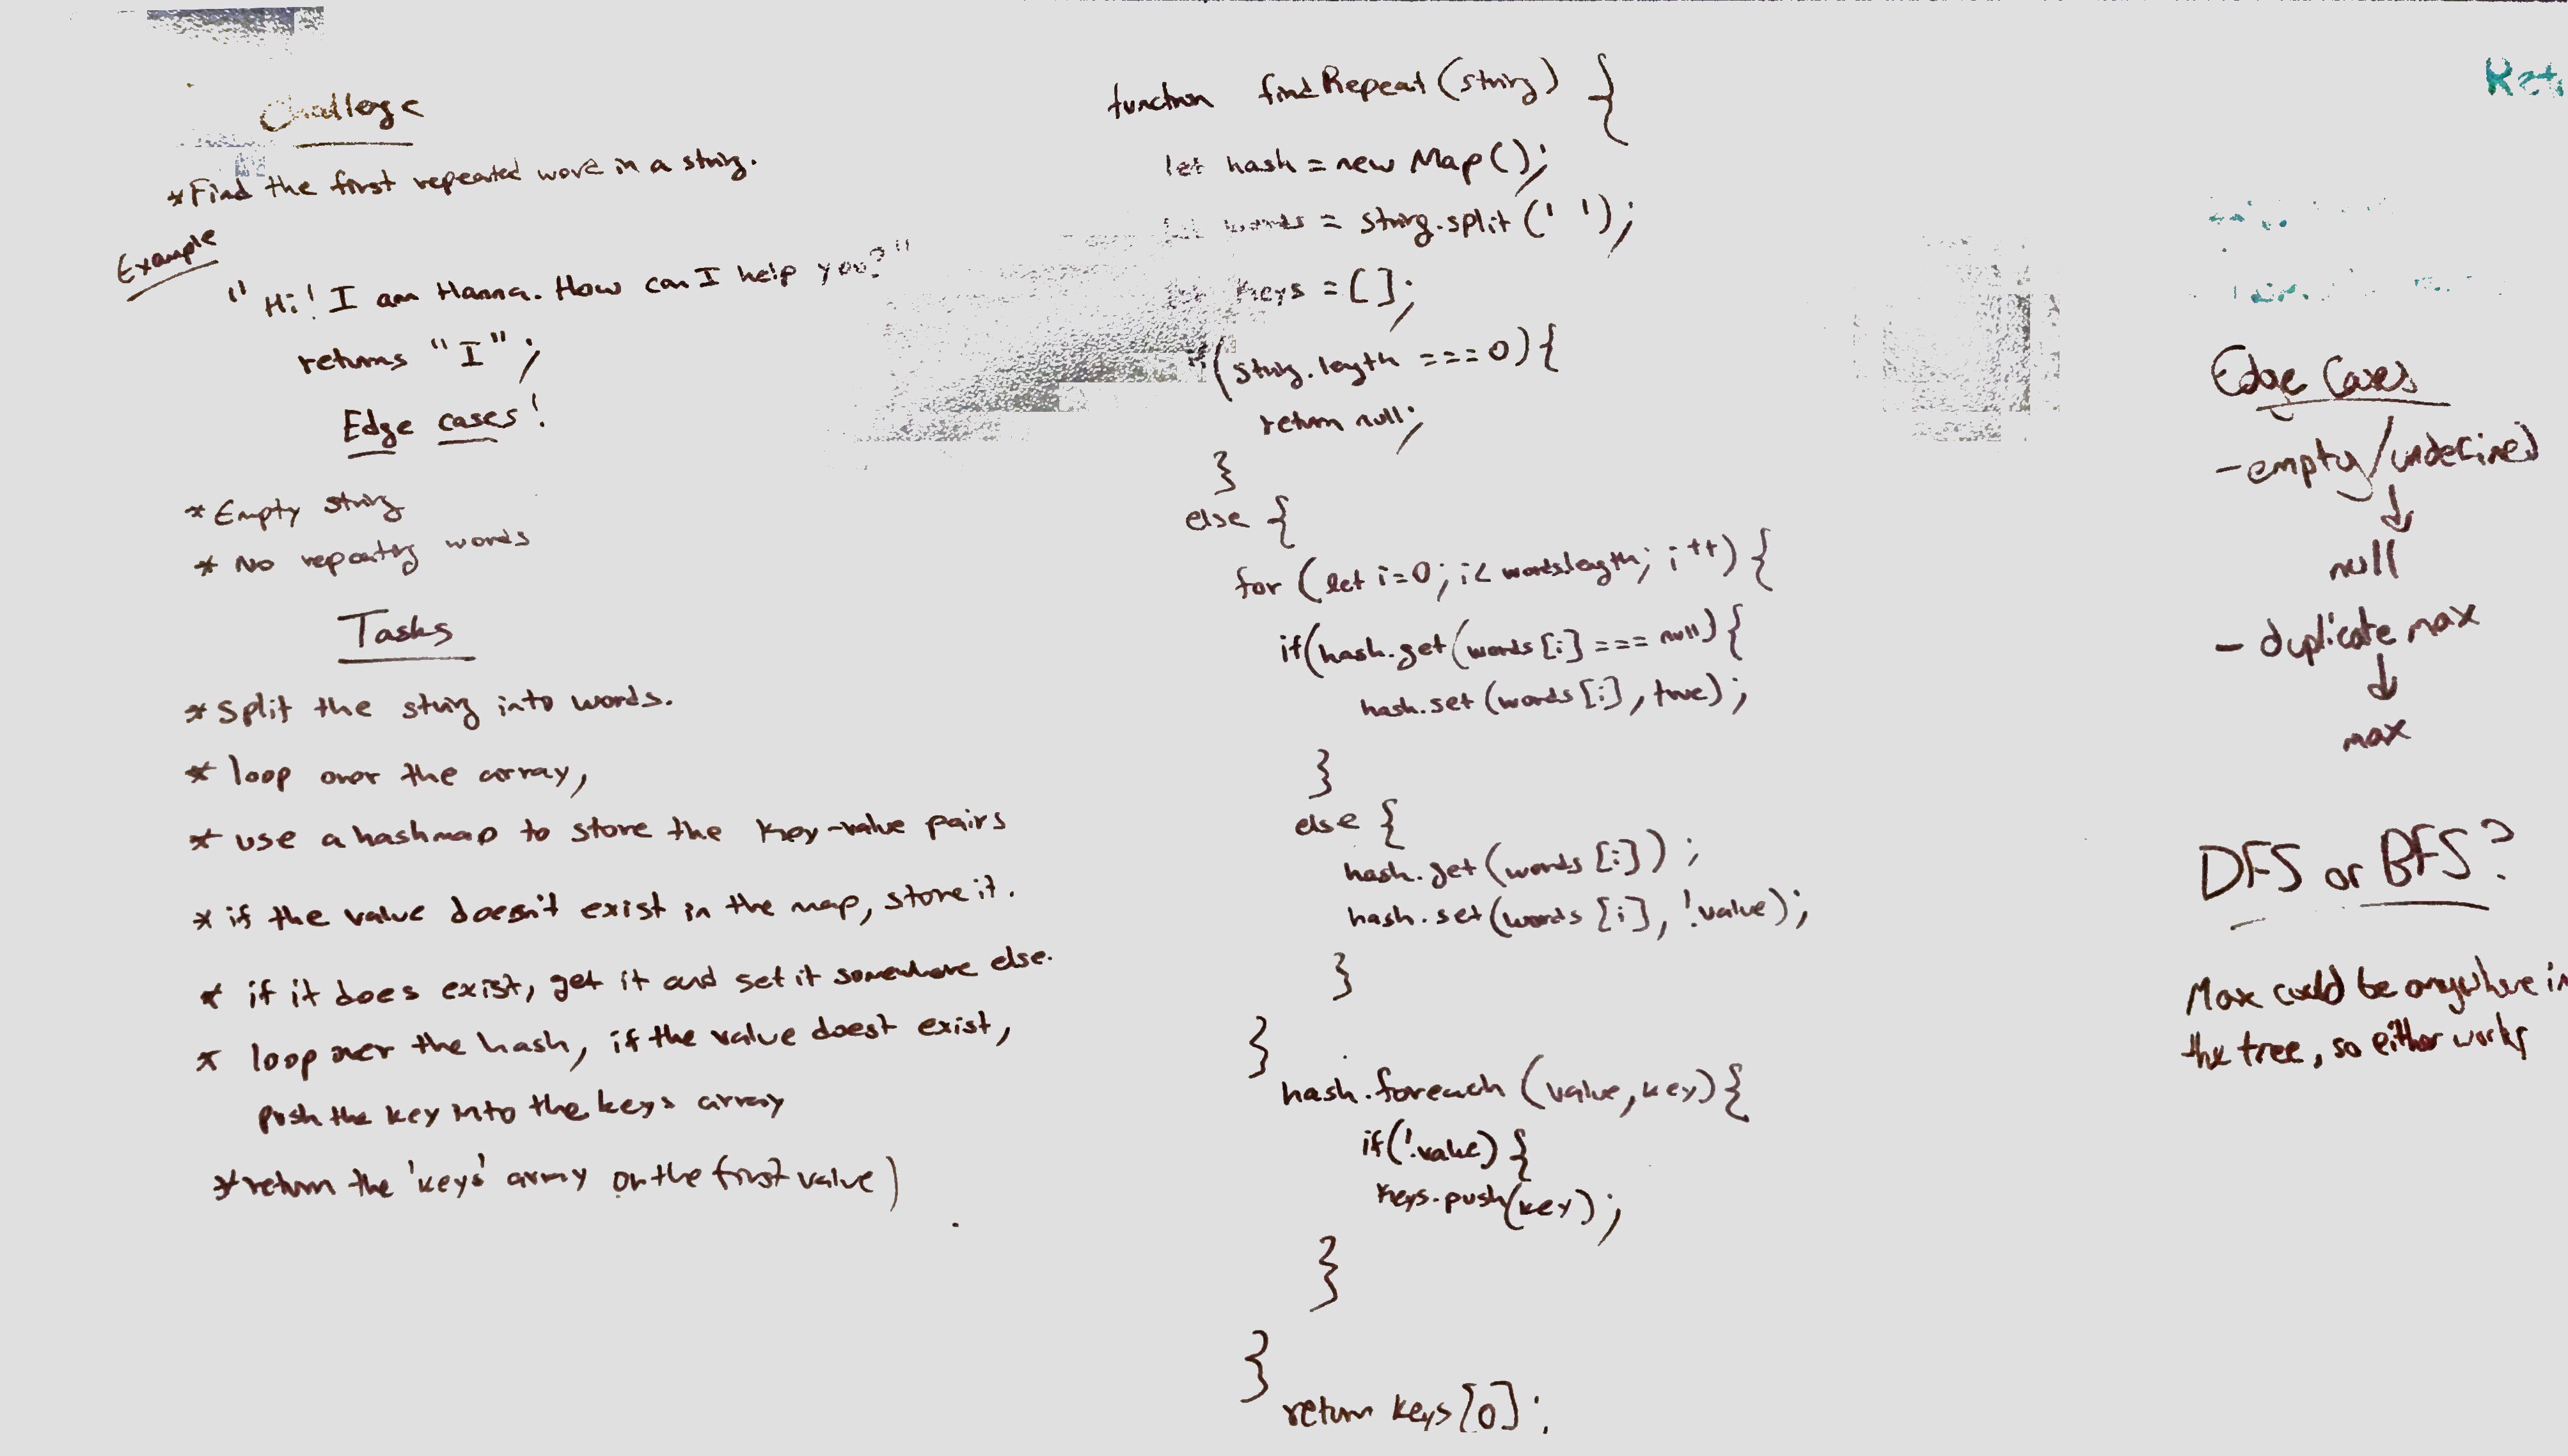 Challenge
*Find the first repeated word in a string.
Example
"Hi! I am Hanna. How can I help you?"
returns "I";
Edge cases!
*Empty string
* No repeating words
Tasks
*Split the string into words.
* loop over the array,
* use a hashmap to store the key-value pairs
* if the value doesn't exist in the map, store it.
* if it does exist, get it and set it somewhere else.
* loop over the hash, if the value doest exist,
push the key into the keys array
*return the 'keys' array or the first value)
function findRepeat(string) {
let hash = new Map();
let words = string.split(' ');
let keys = [];
if(string.length === 0){
return null;
}
else {
for (let i=0; i< words.length; i++) {
if(hash.get(words[i] === null){
hash.set(words[i], true);
}
else {
hash.get(words[i]);
hash.set(words[i], !value);
}
}
hash.foreach (value, key){
if(!value) {
keys.push(key);
}
}
return keys[0];
Ret
Edge Cases
-empty/undefined
↓
null
- duplicate max
↓
max
DFS or BFS?
Max could be anywhere in
the tree, so either works